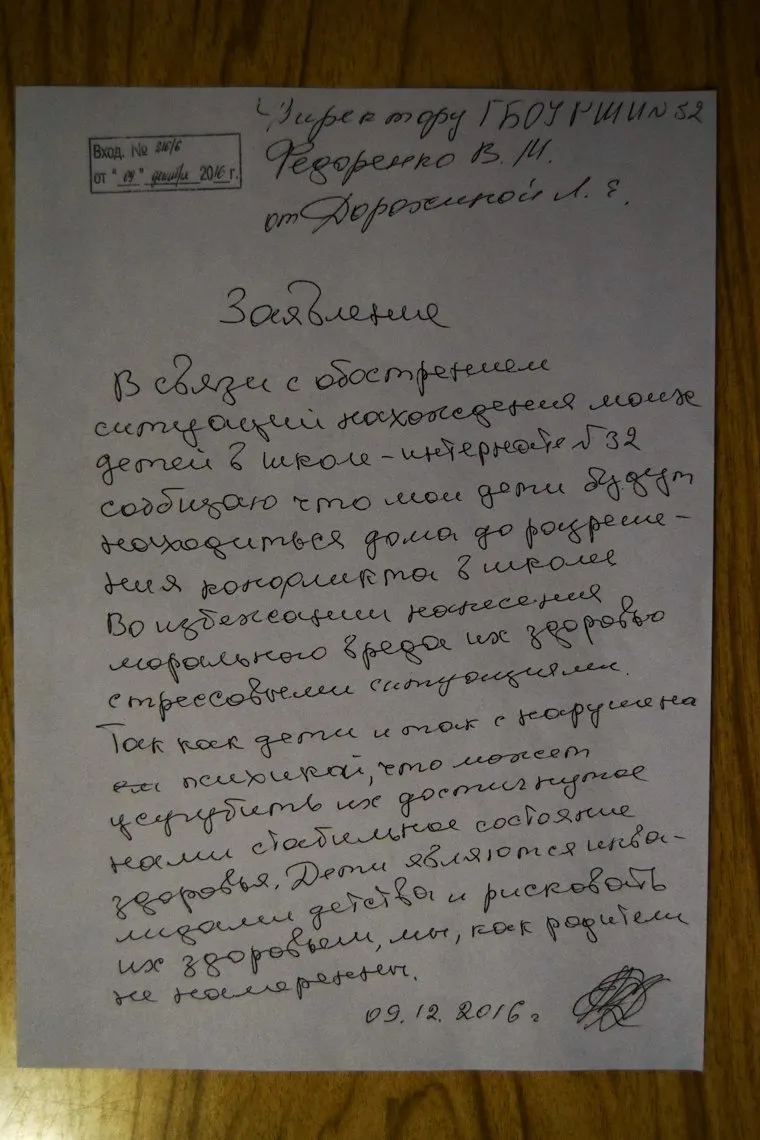 Директору ГБОУ РШИ № 32
Федоренко В. М.
от Дорожиной Л. Е.
Вход. №
от "09" декабря 2016 г.
Заявление
В связи с обострением
ситуаций нахождения моих
детей в школе-интернате № 32
сообщаю что мои дети будут
находиться дома до разреше-
ния конфликта в школе
Во избежации нанесения
морального вреда их здоровью
стрессовыми ситуациями.
Так как дети и так с нарушена
ой психикой, что может
усугубить их достигнутое
нами стабильное состояние
здоровья. Дети являются инва-
лидами детства и рисковать
их здоровьем, мы, как родители
не намеренны.
09.12.2016 г